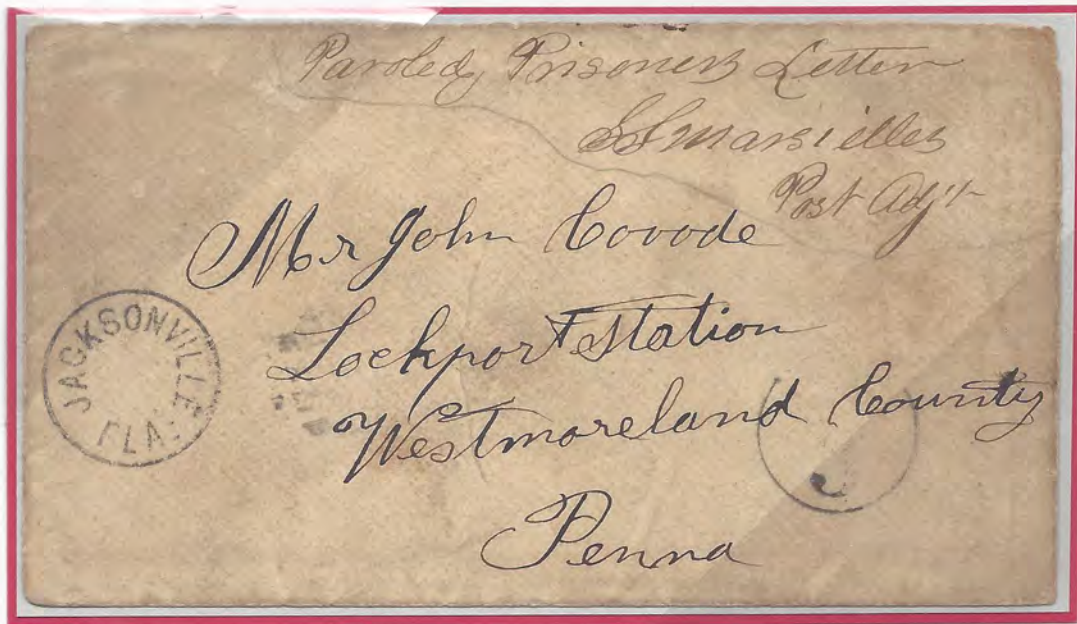 Paroled Prisoners Letter
Marsielles
Post Adjt
Mr John Covode
Lockport Station
Westmoreland County
Penna
JACKSONVILLE
FLA.